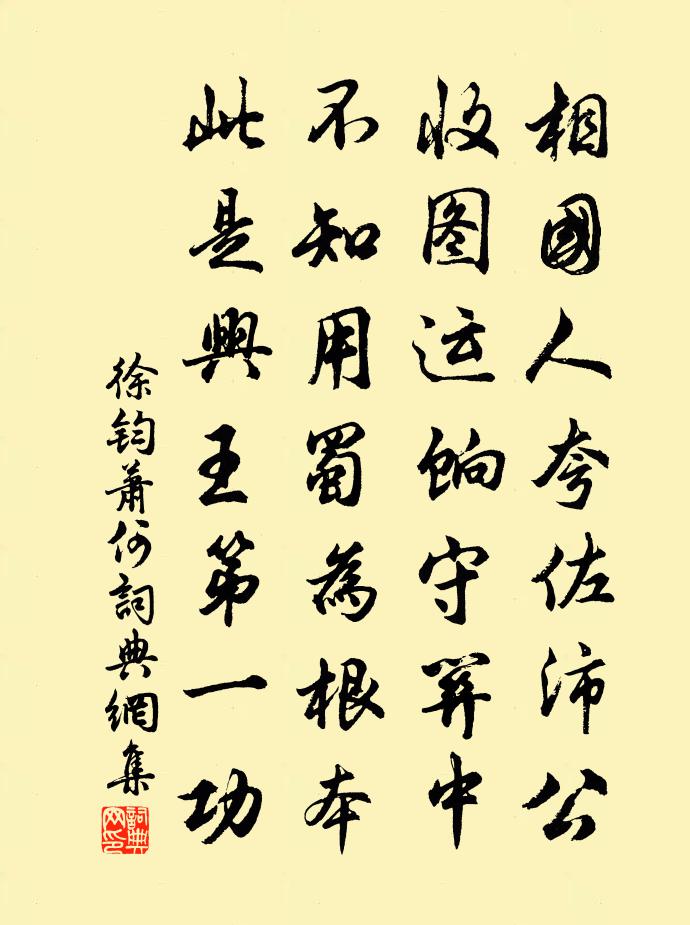 相國人夸佐沛公
收图运餉守関中
不知用蜀為根本
此是興王第一功
徐鈞蕭何詞典網集
詞典網印